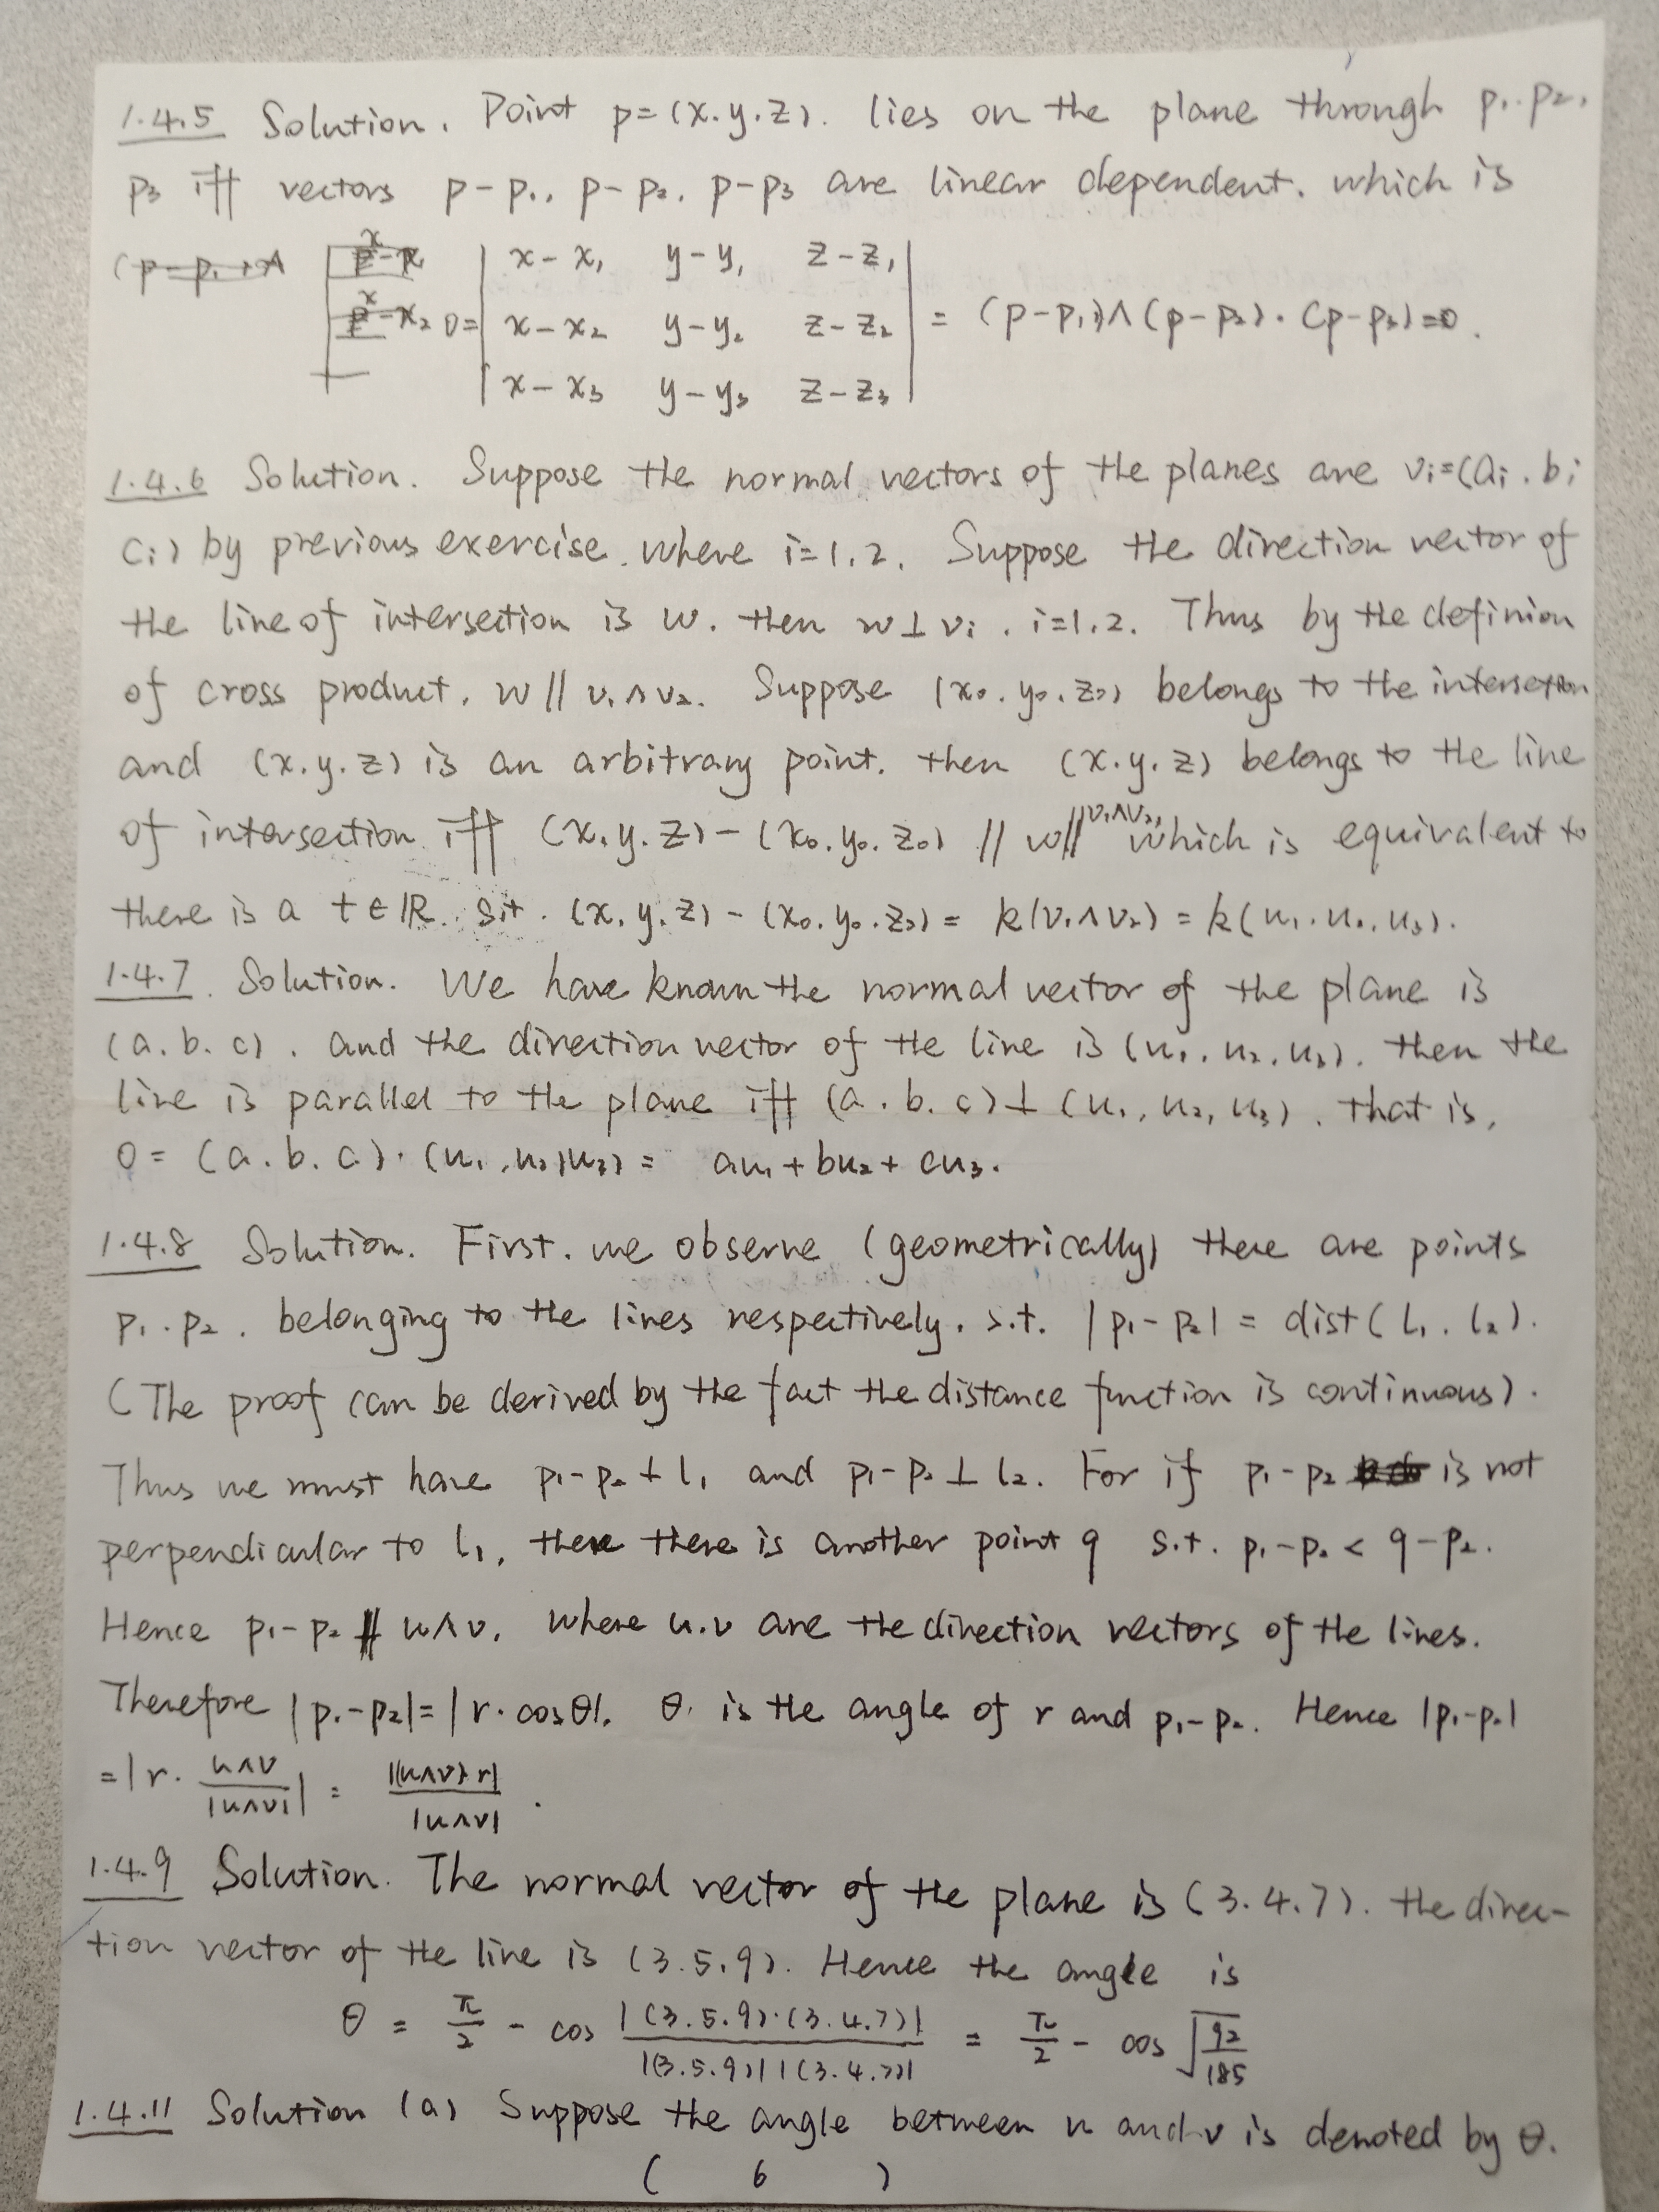 1.4.5 Solution. Point p=(x.y.z). lies on the plane through p1.p2.
p3 iff vectors p-p1, p-p2, p-p3 are linear dependent. which is
0=| x-x1 y-y1 z-z1 |
| x-x2 y-y2 z-z2 | = (p-p1)∧(p-p2)·(p-p3)=0.
| x-x3 y-y3 z-z3 |
1.4.6 Solution. Suppose the normal vectors of the planes are vi=(ai.bi
ci) by previous exercise. where i=1.2. Suppose the direction vector of
the line of intersection is w. then w⊥vi. i=1.2. Thus by the definion
of cross product. w∥v1∧v2. Suppose (x0.y0.z0) belongs to the intersetion
and (x.y.z) is an arbitrary point. then (x.y.z) belongs to the line
of intersection iff (x.y.z)-(x0.y0.z0) ∥ w∥v1∧v2, which is equivalent to
there is a t∈ℝ. s.t. (x.y.z)-(x0.y0.z0)= k(v1∧v2)=k(u1.u2.u3).
1.4.7. Solution. We have known the normal vector of the plane is
(a.b.c). and the direction vector of the line is (u1.u2.u3). then the
line is parallel to the plane iff (a.b.c)⊥(u1,u2,u3). that is,
0=(a.b.c)·(u1,u2,u3)= au1+bu2+cu3.
1.4.8 Solution. First. we observe (geometrically) there are points
p1.p2. belonging to the lines respectively. s.t. |p1-p2| = dist(l1.l2).
(The proof can be derived by the fact the distance function is continuous).
Thus we must have p1-p2⊥l1 and p1-p2⊥l2. For if p1-p2 is not
perpendicular to l1, there there is another point q s.t. p1-p2 < q-p2.
Hence p1-p2 ∥ u∧v. where u.v are the direction vectors of the lines.
Therefore |p1-p2|=|r·cosθ|. θ. is the angle of r and p1-p2. Hence |p1-p2|
=|r· u∧v/|u∧v|| = |(u∧v)·r|/|u∧v|.
1.4.9 Solution. The normal vector of the plane is (3.4.7). the direc-
tion vector of the line is (3.5.9). Hence the angle is
θ = π/2 - cos |(3.5.9)·(3.4.7)|/|(3.5.9)||(3.4.7)| = π/2 - cos √(92/185)
1.4.11 Solution (a) Suppose the angle between u and v is denoted by θ.
( 6 )